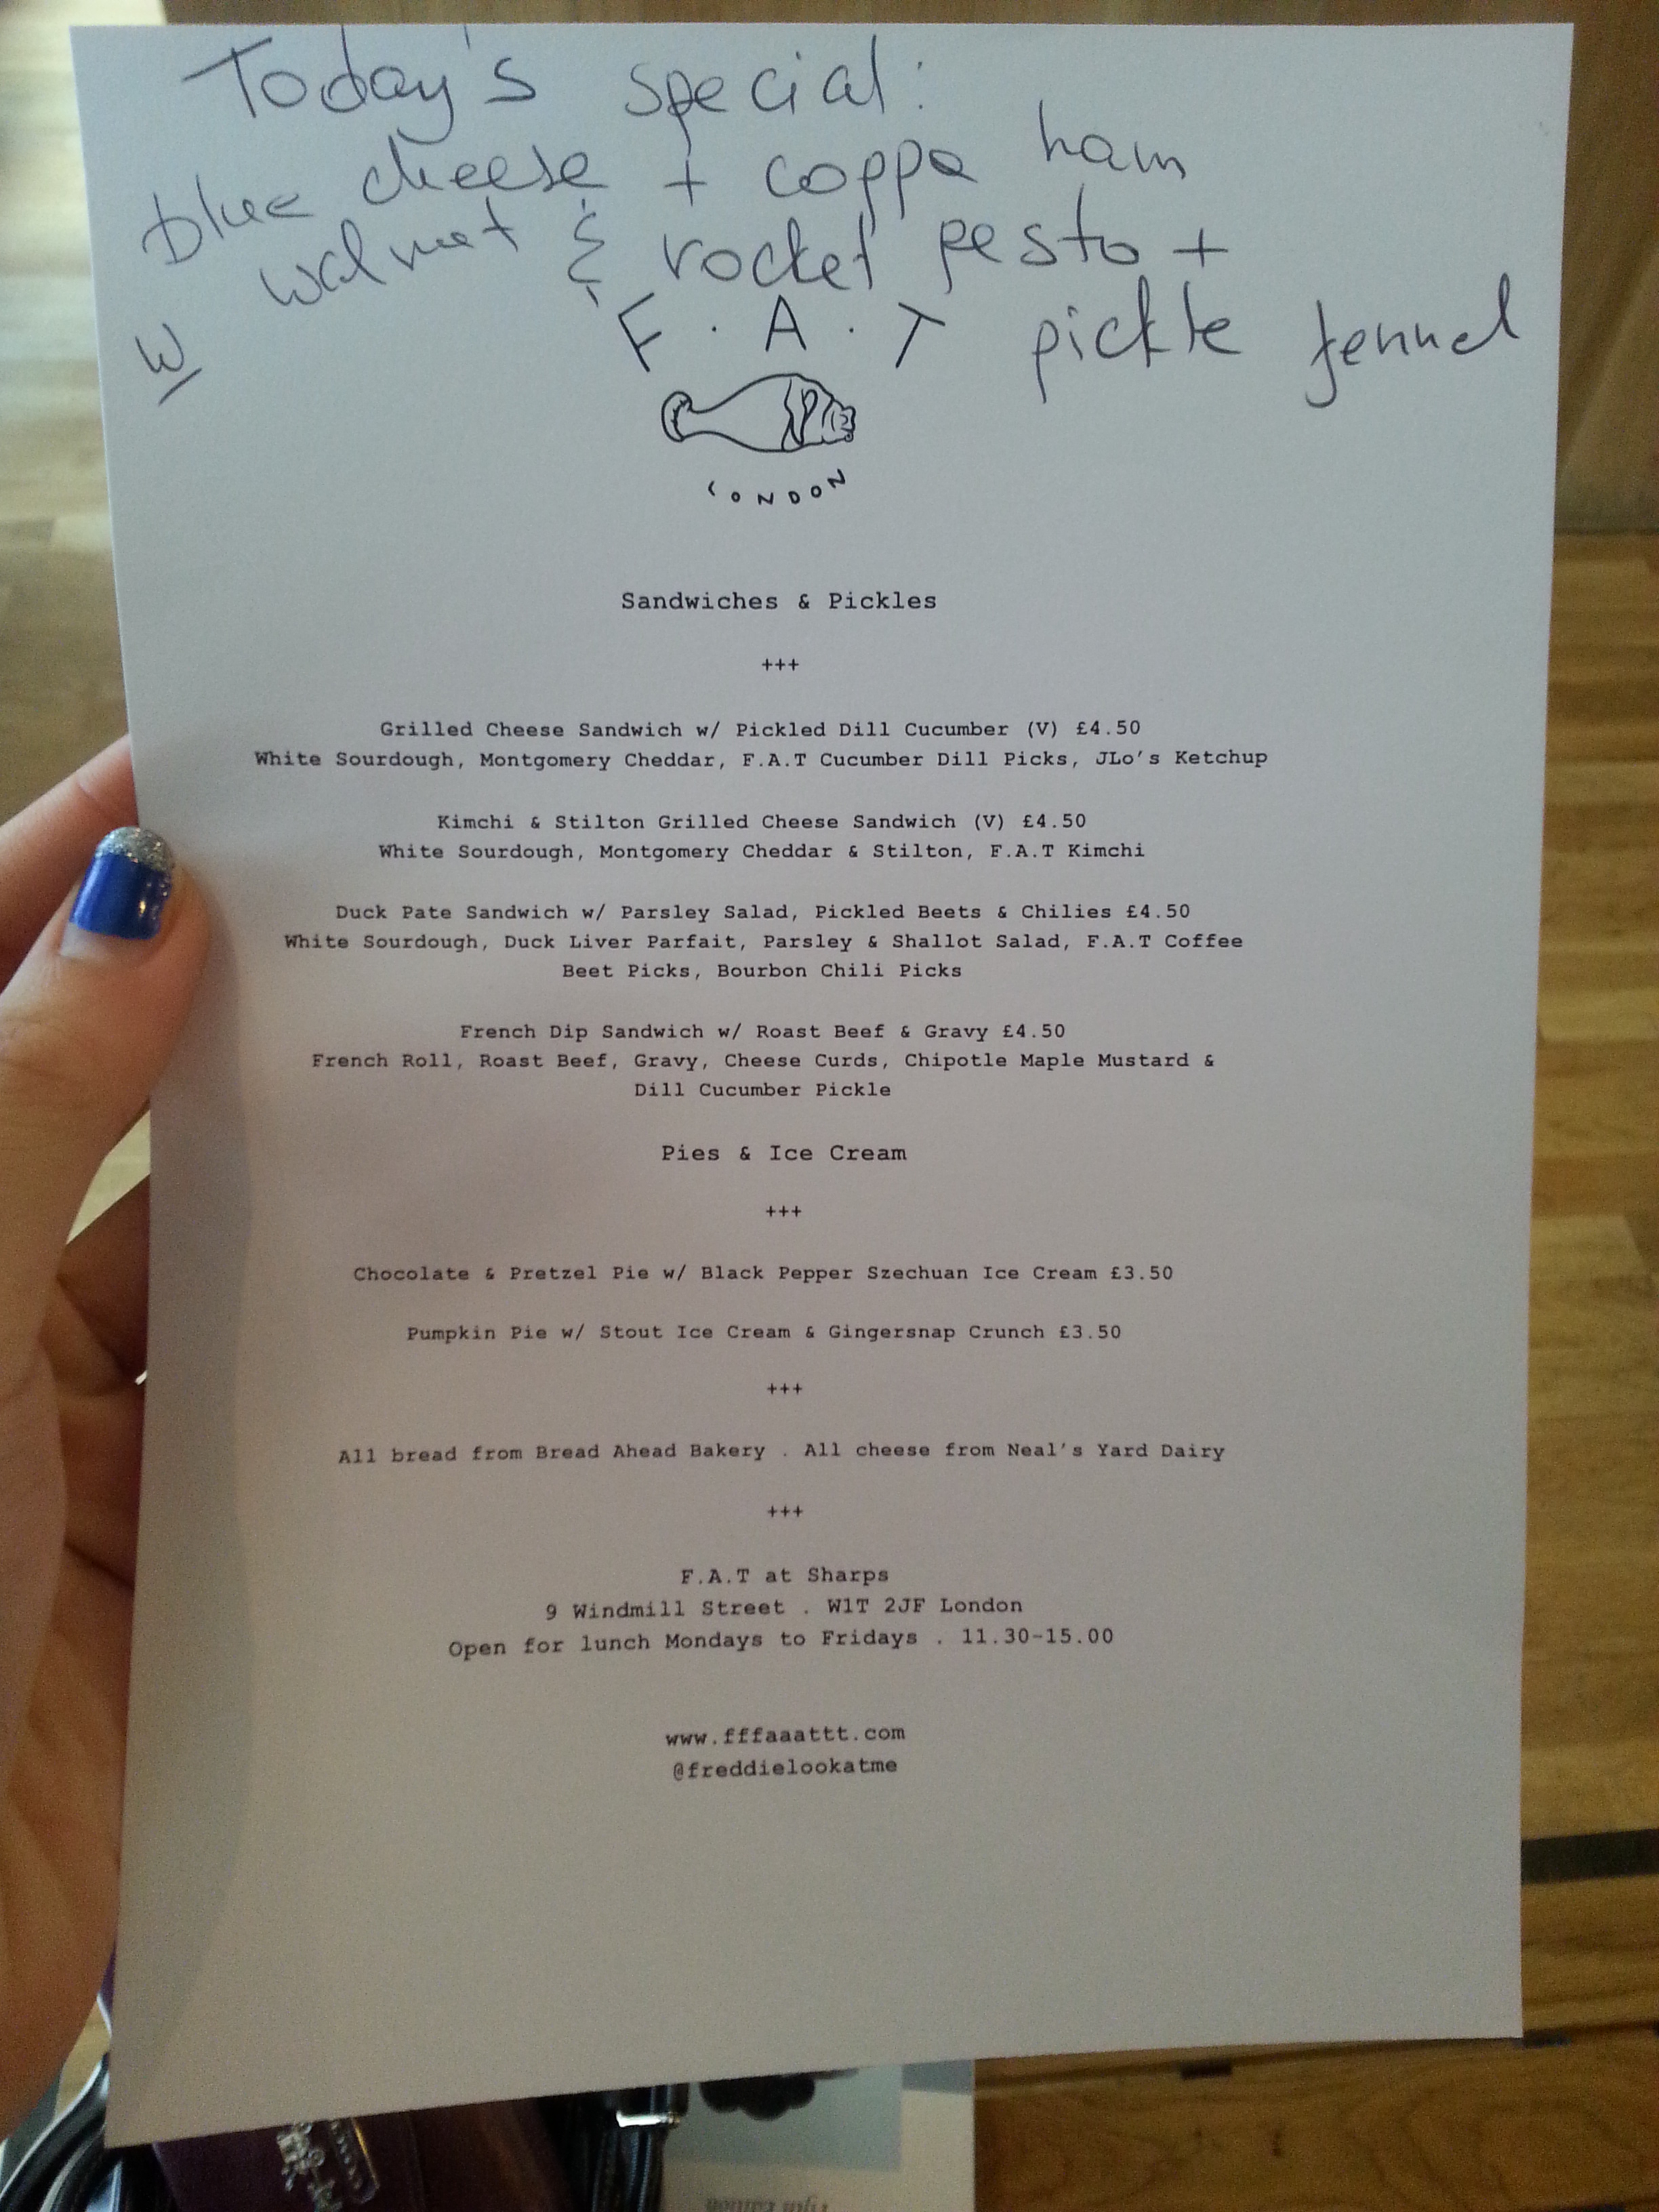 Today's special:
blue cheese + coppa ham
w walnut & rocket pesto +
pickle fennel
F.A.T
LONDON
Sandwiches & Pickles
+++
Grilled Cheese Sandwich w/ Pickled Dill Cucumber (V) £4.50
White Sourdough, Montgomery Cheddar, F.A.T Cucumber Dill Picks, JLo's Ketchup
Kimchi & Stilton Grilled Cheese Sandwich (V) £4.50
White Sourdough, Montgomery Cheddar & Stilton, F.A.T Kimchi
Duck Pate Sandwich w/ Parsley Salad, Pickled Beets & Chilies £4.50
White Sourdough, Duck Liver Parfait, Parsley & Shallot Salad, F.A.T Coffee
Beet Picks, Bourbon Chili Picks
French Dip Sandwich w/ Roast Beef & Gravy £4.50
French Roll, Roast Beef, Gravy, Cheese Curds, Chipotle Maple Mustard &
Dill Cucumber Pickle
Pies & Ice Cream
+++
Chocolate & Pretzel Pie w/ Black Pepper Szechuan Ice Cream £3.50
Pumpkin Pie w/ Stout Ice Cream & Gingersnap Crunch £3.50
+++
All bread from Bread Ahead Bakery . All cheese from Neal's Yard Dairy
+++
F.A.T at Sharps
9 Windmill Street . W1T 2JF London
Open for lunch Mondays to Fridays . 11.30-15.00
www.fffaaattt.com
@freddielookatme